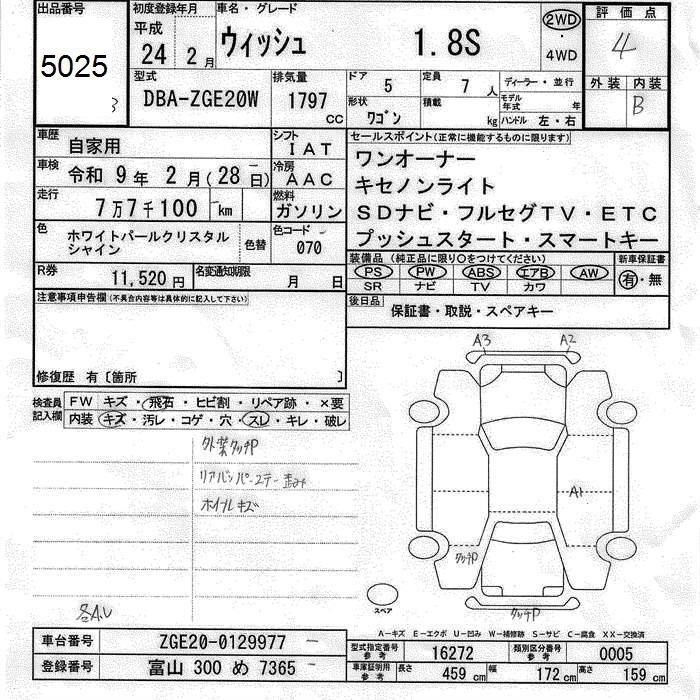 出品番号
5025
3
初度登録年月
平成
24 2月
車名・グレード
ウィッシュ 1.8S
2WD
・
4WD
評価点
4
外装 内装
B
型式
DBA-ZGE20W
排気量
1797 CC
ドア 5
定員 7人
ディーラー・並行
形状 ワゴン
積載 kg
モデル年式 年
ハンドル 左・右
車歴 自家用
シフト IAT
車検 令和 9年 2月(28日)
冷房 AAC
走行 7万7千100 km
燃料 ガソリン
色 ホワイトパールクリスタル
シャイン
色替
色コード 070
R券 11,520円
名変通知期限 月 日
セールスポイント(正常に機能するものに限ります)
ワンオーナー
キセノンライト
SDナビ・フルセグTV・ETC
プッシュスタート・スマートキー
装備品(純正品に限り○をつけてください)
PS PW ABS エアB AW
SR ナビ TV カワ
新車保証書
有・無
後日品 保証書・取説・スペアキー
注意事項申告欄(不具合内容等は具体的に記入して下さい)
修復歴 有〔箇所 〕
検査員
記入欄
FW キズ・飛石・ヒビ割・リペア跡・×要
内装 キズ・汚レ・コゲ・穴・スレ・キレ・破レ
外装タッチP
リアバンパーステー歪み
ホイルキズ
A3 A2
A1
タッチP
タッチP
スペア
A-キズ E-エクボ U-凹み W-補修跡 S-サビ C-腐食 XX-交換済
車台番号 ZGE20-0129977
登録番号 富山 300 め 7365
型式指定番号 参考 16272
類別区分番号 参考 0005
車庫証明用 参考 長さ 459cm 幅 172cm 高さ 159cm